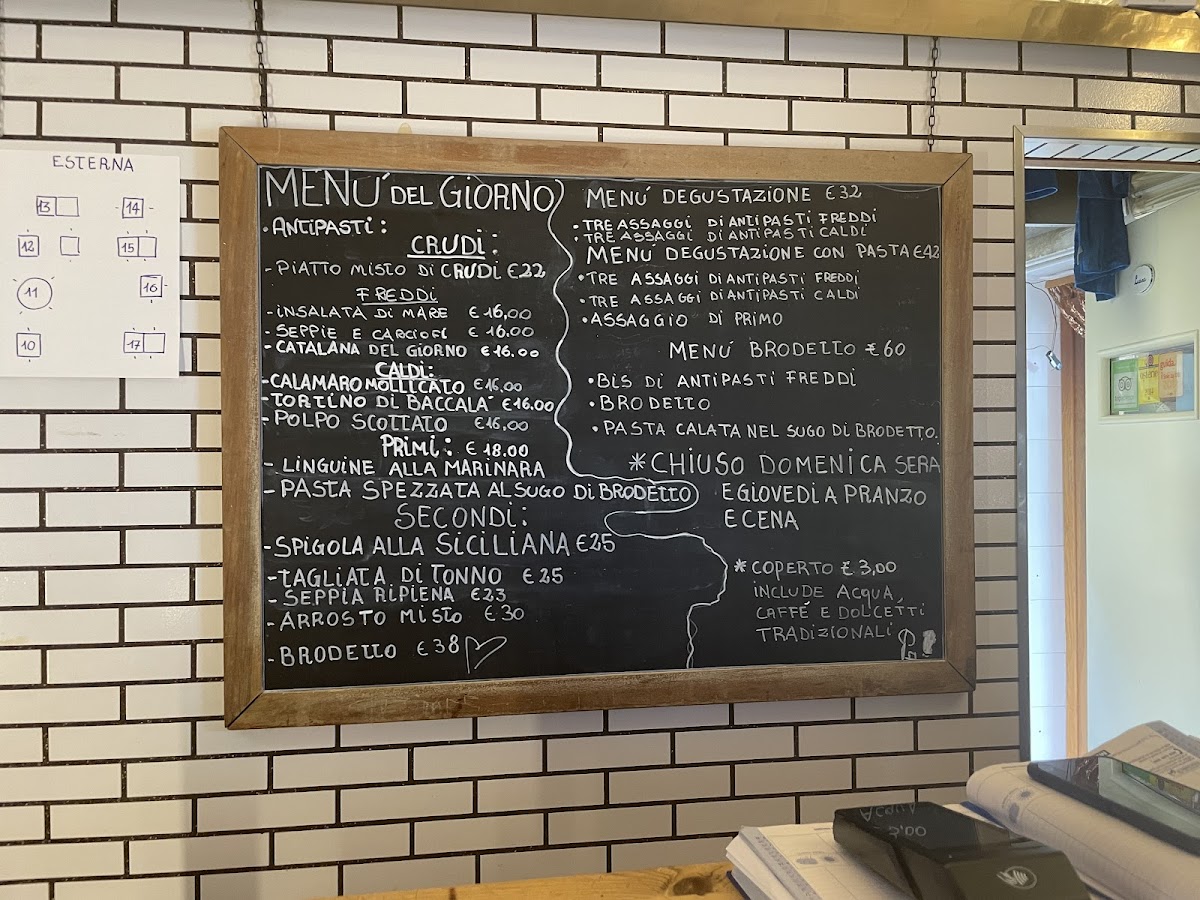 ESTERNA
13
14
12
15
11
16
10
17
MENÚ DEL GIORNO
• ANTIPASTI:
CRUDI:
- PIATTO MISTO DI CRUDI €22
FREDDI
- INSALATA DI MARE € 16,00
- SEPPIE E CARCIOFI € 16.00
- CATALANA DEL GIORNO € 16.00
CALDI:
- CALAMARO MOLLICATO € 16.00
- TORTINO DI BACCALA' € 16.00
- POLPO SCOTTATO € 16,00
PRIMI: € 18.00
- LINGUINE ALLA MARINARA
- PASTA SPEZZATA AL SUGO DI BRODETTO
SECONDI:
- SPIGOLA ALLA SICILIANA €25
- TAGLIATA DI TONNO €25
- SEPPIA RIPIENA €23
- ARROSTO MISTO €30
- BRODETTO €38
MENÚ DEGUSTAZIONE €32
• TRE ASSAGGI DI ANTIPASTI FREDDI
• TRE ASSAGGI DI ANTIPASTI CALDI
MENÚ DEGUSTAZIONE CON PASTA €42
• TRE ASSAGGI DI ANTIPASTI FREDDI
• TRE ASSAGGI DI ANTIPASTI CALDI
• ASSAGGIO DI PRIMO
MENÚ BRODETTO €60
• BIS DI ANTIPASTI FREDDI
• BRODETTO
• PASTA CALATA NEL SUGO DI BRODETTO.
* CHIUSO DOMENICA SERA
E GIOVEDI A PRANZO
E CENA
* COPERTO € 3,00
INCLUDE ACQUA,
CAFFÉ E DOLCETTI
TRADIZIONALI